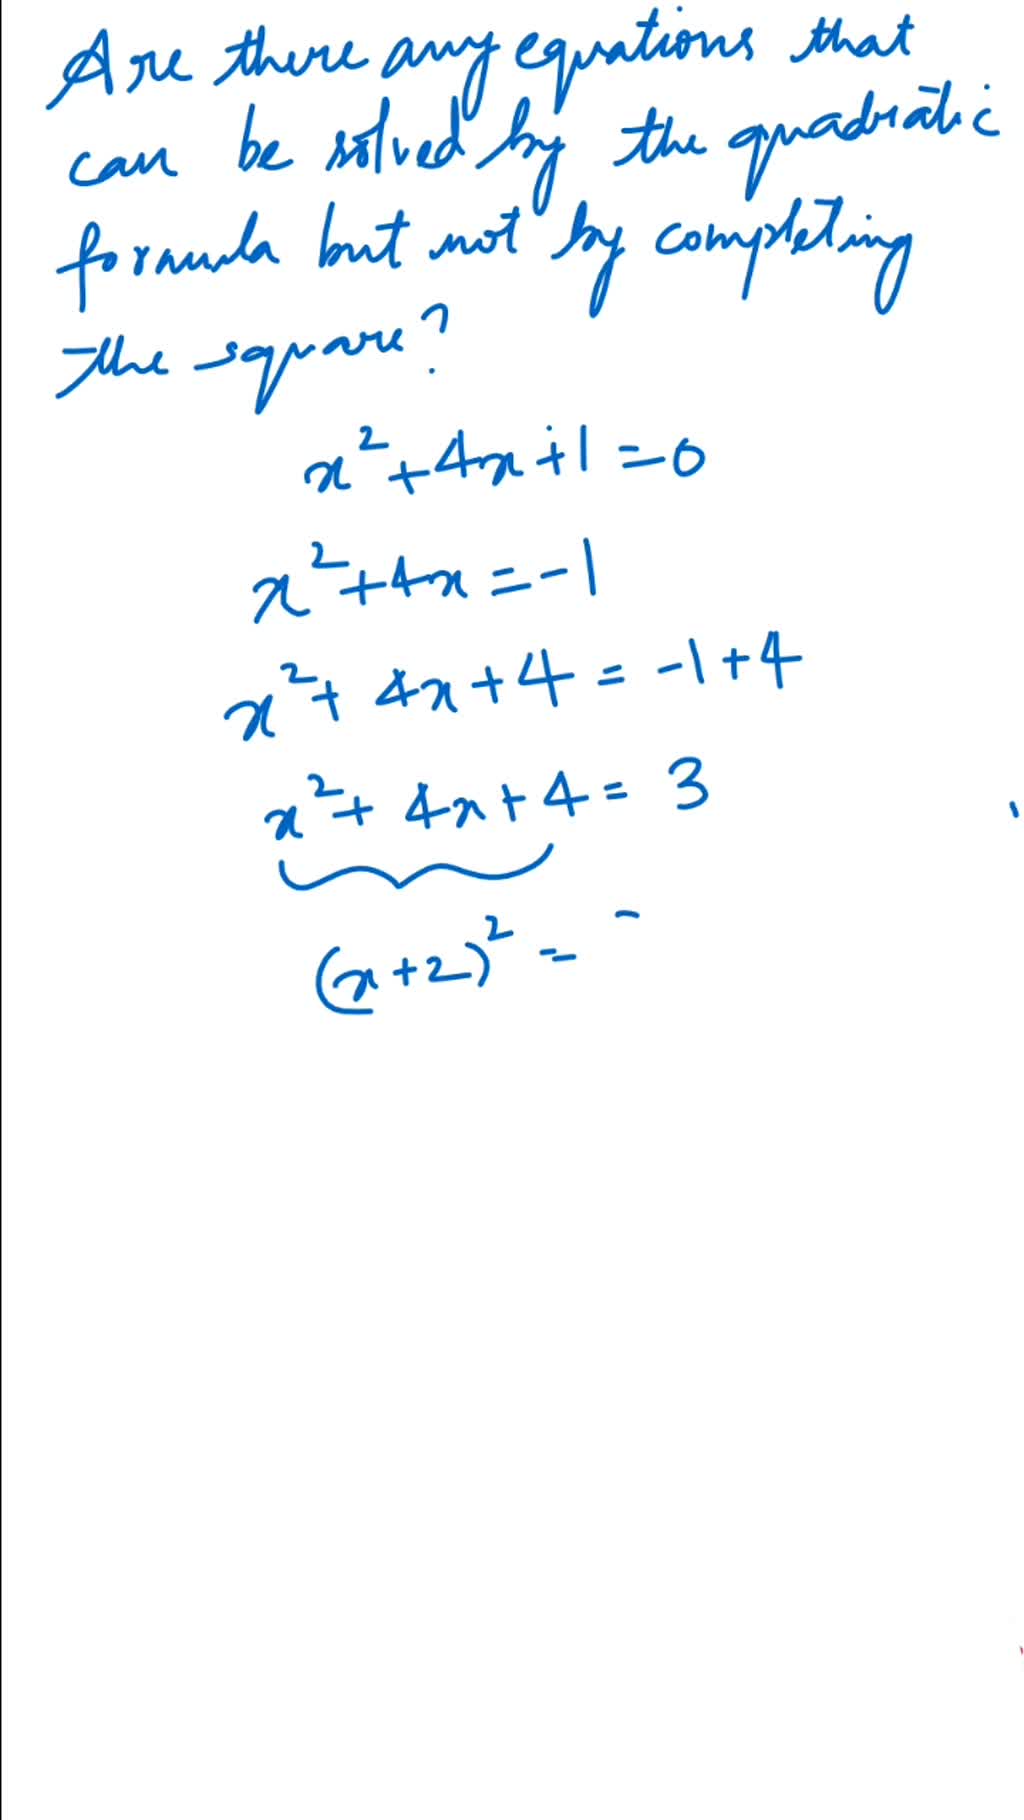 Are there any equations that
can be solved by the quadratic
formula but not by completing
the square?
x² + 4x + 1 = 0
x² + 4x = -1
x² + 4x + 4 = -1 + 4
x² + 4x + 4 = 3
(x + 2)² =